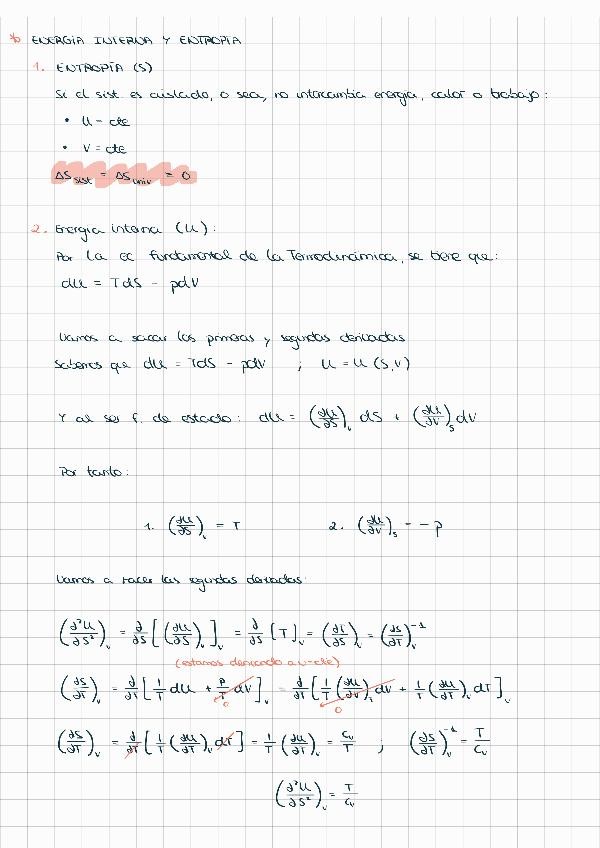 * ENERGÍA INTERNA Y ENTROPÍA
1. ENTROPÍA (S)
Si el sist. es aislado, o sea, no intercambia energía, calor o trabajo:
• U - cte
• V = cte
ΔS_sist = ΔS_univ = 0
2. Energía interna (U):
Por la ec fundamental de la Termodinámica, se tiene que:
dU = TdS - pdV
Vamos a sacar las primeras y segundas derivadas
Sabemos que dU = TdS - pdV ; U = U (S,V)
Y al ser f. de estado: dU = (∂U/∂S)_V dS + (∂U/∂V)_S dV
Por tanto:
1. (∂U/∂S)_V = T 2. (∂U/∂V)_S = - p
Vamos a hacer las segundas derivadas:
(∂²U/∂S²)_V = ∂/∂S [(∂U/∂S)_V]_V = ∂/∂S [T]_V = (∂T/∂S)_V = (∂S/∂T)_V^-1
(estamos derivando a V-cte)
(∂S/∂T)_V = ∂/∂T [1/T dU + p/T dV]_V = ∂/∂T [1/T (∂U/∂V)_T dV + 1/T (∂U/∂T)_V dT]_V
0 0
(∂S/∂T)_V = ∂/∂T [1/T (∂U/∂T)_V dT] = 1/T (∂U/∂T)_V = C_V/T ; (∂S/∂T)_V^-1 = T/C_V
(∂²U/∂S²)_V = T/C_V